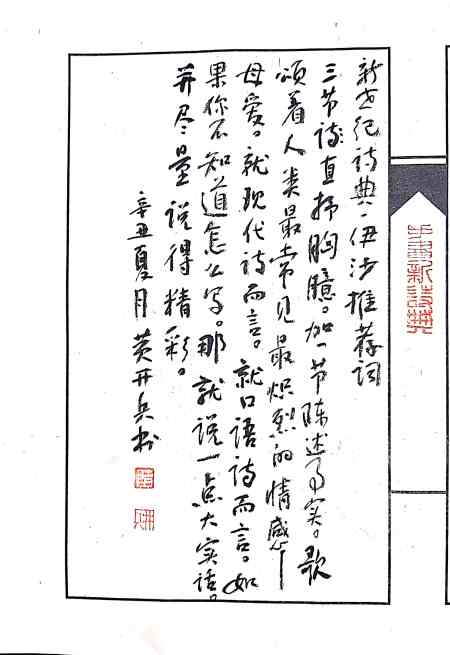 新世纪诗典·伊沙推荐词
三节诗直抒胸臆。加一节陈述事实。歌
颂着人类最常见最炽烈的情感——
母爱。就现代诗而言。就口语诗而言。如
果你不知道怎么写。那就说一点大实话。
并尽量说得精彩。
辛丑夏月 黄开兵